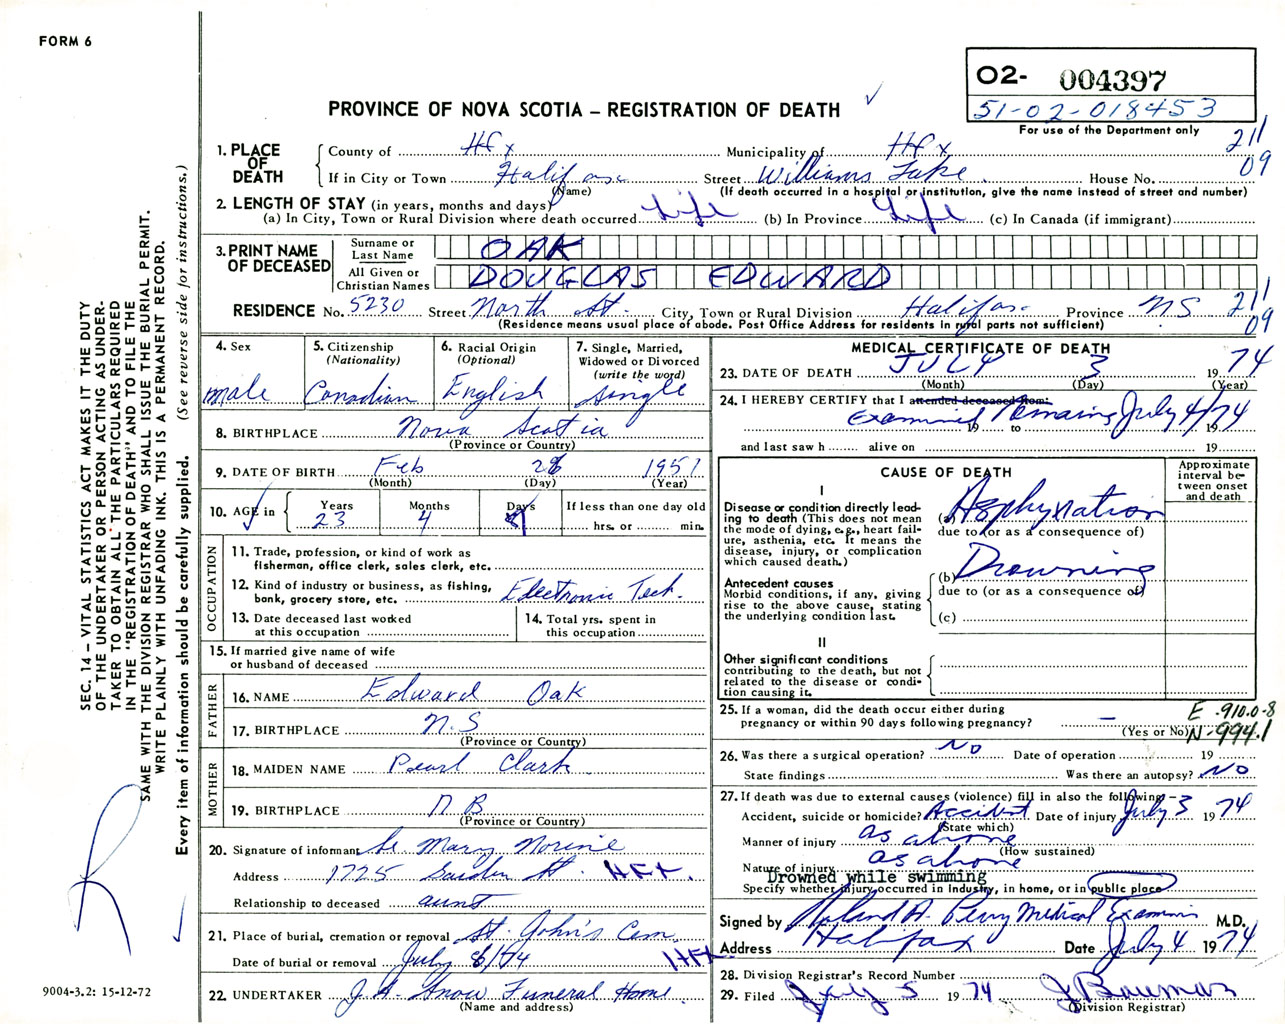 FORM 6
O2- 004397
51-02-018453
For use of the Department only
PROVINCE OF NOVA SCOTIA – REGISTRATION OF DEATH
211
09
1. PLACE OF DEATH
County of Hfx Municipality of Hfx
If in City or Town Halifax Street Williams Lake House No.
(Name) (If death occurred in a hospital or institution, give the name instead of street and number)
2. LENGTH OF STAY (in years, months and days)
(a) In City, Town or Rural Division where death occurred Life (b) In Province Life (c) In Canada (if immigrant)
3. PRINT NAME OF DECEASED
Surname or Last Name OAK
All Given or Christian Names DOUGLAS EDWARD
RESIDENCE No. 5230 Street North St. City, Town or Rural Division Halifax Province N.S
211
09
(Residence means usual place of abode. Post Office Address for residents in rural parts not sufficient)
4. Sex
male
5. Citizenship
(Nationality)
Canadian
6. Racial Origin
(Optional)
English
7. Single, Married,
Widowed or Divorced
(write the word)
single
8. BIRTHPLACE Nova Scotia
(Province or Country)
9. DATE OF BIRTH Feb 28 1951
(Month) (Day) (Year)
10. AGE in
Years Months Days If less than one day old
23 4 hrs. or min.
OCCUPATION
11. Trade, profession, or kind of work as
fisherman, office clerk, sales clerk, etc.
12. Kind of industry or business, as fishing,
bank, grocery store, etc. Electronic Tech.
13. Date deceased last worked
at this occupation
14. Total yrs. spent in
this occupation
15. If married give name of wife
or husband of deceased
FATHER
16. NAME Edward Oak
17. BIRTHPLACE N.S
(Province or Country)
MOTHER
18. MAIDEN NAME Pearl Clark
19. BIRTHPLACE N B
(Province or Country)
20. Signature of informant Sr Mary Norine
Address 1725 St. HFX.
Relationship to deceased aunt
21. Place of burial, cremation or removal St. John's Cem.
Date of burial or removal July 6/74 HFX
22. UNDERTAKER J.A. Snow Funeral Home.
(Name and address)
MEDICAL CERTIFICATE OF DEATH
23. DATE OF DEATH JULY 3 1974
(Month) (Day) (Year)
24. I HEREBY CERTIFY that I attended deceased from:
Examined Remains July 4/74
19 to 19
and last saw h alive on 19
CAUSE OF DEATH
Approximate interval between onset and death
I
Disease or condition directly leading to death (This does not mean the mode of dying, e.g., heart failure, asthenia, etc. It means the disease, injury, or complication which caused death.)
(a) Asphyxiation
due to (or as a consequence of)
Antecedent causes
Morbid conditions, if any, giving rise to the above cause, stating the underlying condition last.
(b) Drowning
due to (or as a consequence of)
(c)
II
Other significant conditions
contributing to the death, but not related to the disease or condition causing it.
25. If a woman, did the death occur either during
pregnancy or within 90 days following pregnancy? –
(Yes or No)
E .910.0-8
N-994.1
26. Was there a surgical operation? No Date of operation 19
State findings Was there an autopsy? No
27. If death was due to external causes (violence) fill in also the following:–
Accident, suicide or homicide? Accident Date of injury July 3 1974
(State which)
Manner of injury as above
(How sustained)
Nature of injury as above
Drowned while swimming
Specify whether injury occurred in Industry, in home, or in public place
Signed by Roland A. Perry Medical Examiner M.D.
Address Halifax Date July 4 1974
28. Division Registrar's Record Number
29. Filed July 5 1974 J Bauman
(Division Registrar)
SEC. 14 – VITAL STATISTICS ACT MAKES IT THE DUTY
OF THE UNDERTAKER OR PERSON ACTING AS UNDER-
TAKER TO OBTAIN ALL THE PARTICULARS REQUIRED
IN THE "REGISTRATION OF DEATH" AND TO FILE THE
SAME WITH THE DIVISION REGISTRAR WHO SHALL ISSUE THE BURIAL PERMIT.
WRITE PLAINLY WITH UNFADING INK. THIS IS A PERMANENT RECORD.
Every item of information should be carefully supplied. (See reverse side for instructions.)
R
9004-3.2: 15-12-72